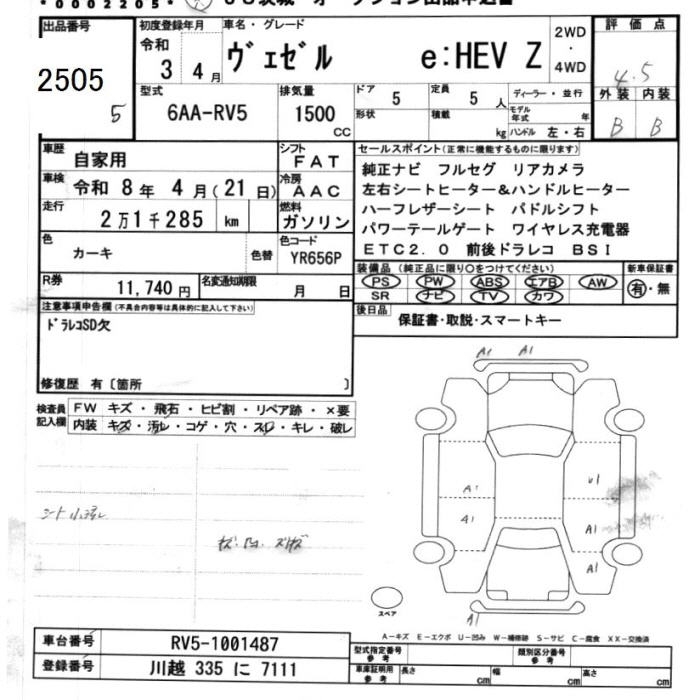 *0002205*
出品番号
2505
5
初度登録年月
令和
3 4月
車名・グレード
ヴェゼル e:HEV Z
2WD
・
4WD
評価点
4.5
外装 内装
B B
型式
6AA-RV5
排気量
1500
CC
ドア 5
形状
定員 5 人
積載 kg
ディーラー・並行
モデル年式 年
ハンドル 左・右
車歴 自家用
車検 令和 8年 4月(21日)
走行 2万1千285 km
色 カーキ 色替
シフト FAT
冷房 AAC
燃料 ガソリン
色コード YR656P
R券 11,740円
名変通知期限 月 日
セールスポイント(正常に機能するものに限ります)
純正ナビ フルセグ リアカメラ
左右シートヒーター&ハンドルヒーター
ハーフレザーシート パドルシフト
パワーテールゲート ワイヤレス充電器
ETC2.0 前後ドラレコ BSI
装備品(純正品に限り○をつけてください)
PS PW ABS エアB AW
SR ナビ TV カワ
新車保証書
有・無
後日品 保証書・取説・スマートキー
注意事項申告欄(不具合内容等は具体的に記入して下さい)
ドラレコSD欠
修復歴 有〔箇所 〕
検査員記入欄
FW キズ・飛石・ヒビ割・リペア跡・×要
内装 キズ・汚レ・コゲ・穴・スレ・キレ・破レ
A1 A1
A1
A1
U1
A1
A1
A1
スペア
A-キズ E-エクボ U-凹み W-補修跡 S-サビ C-腐食 XX-交換済
車台番号 RV5-1001487
登録番号 川越 335 に 7111
型式指定番号
参考
類別区分番号
参考
車庫証明用
参考
長さ cm
幅 cm
高さ cm